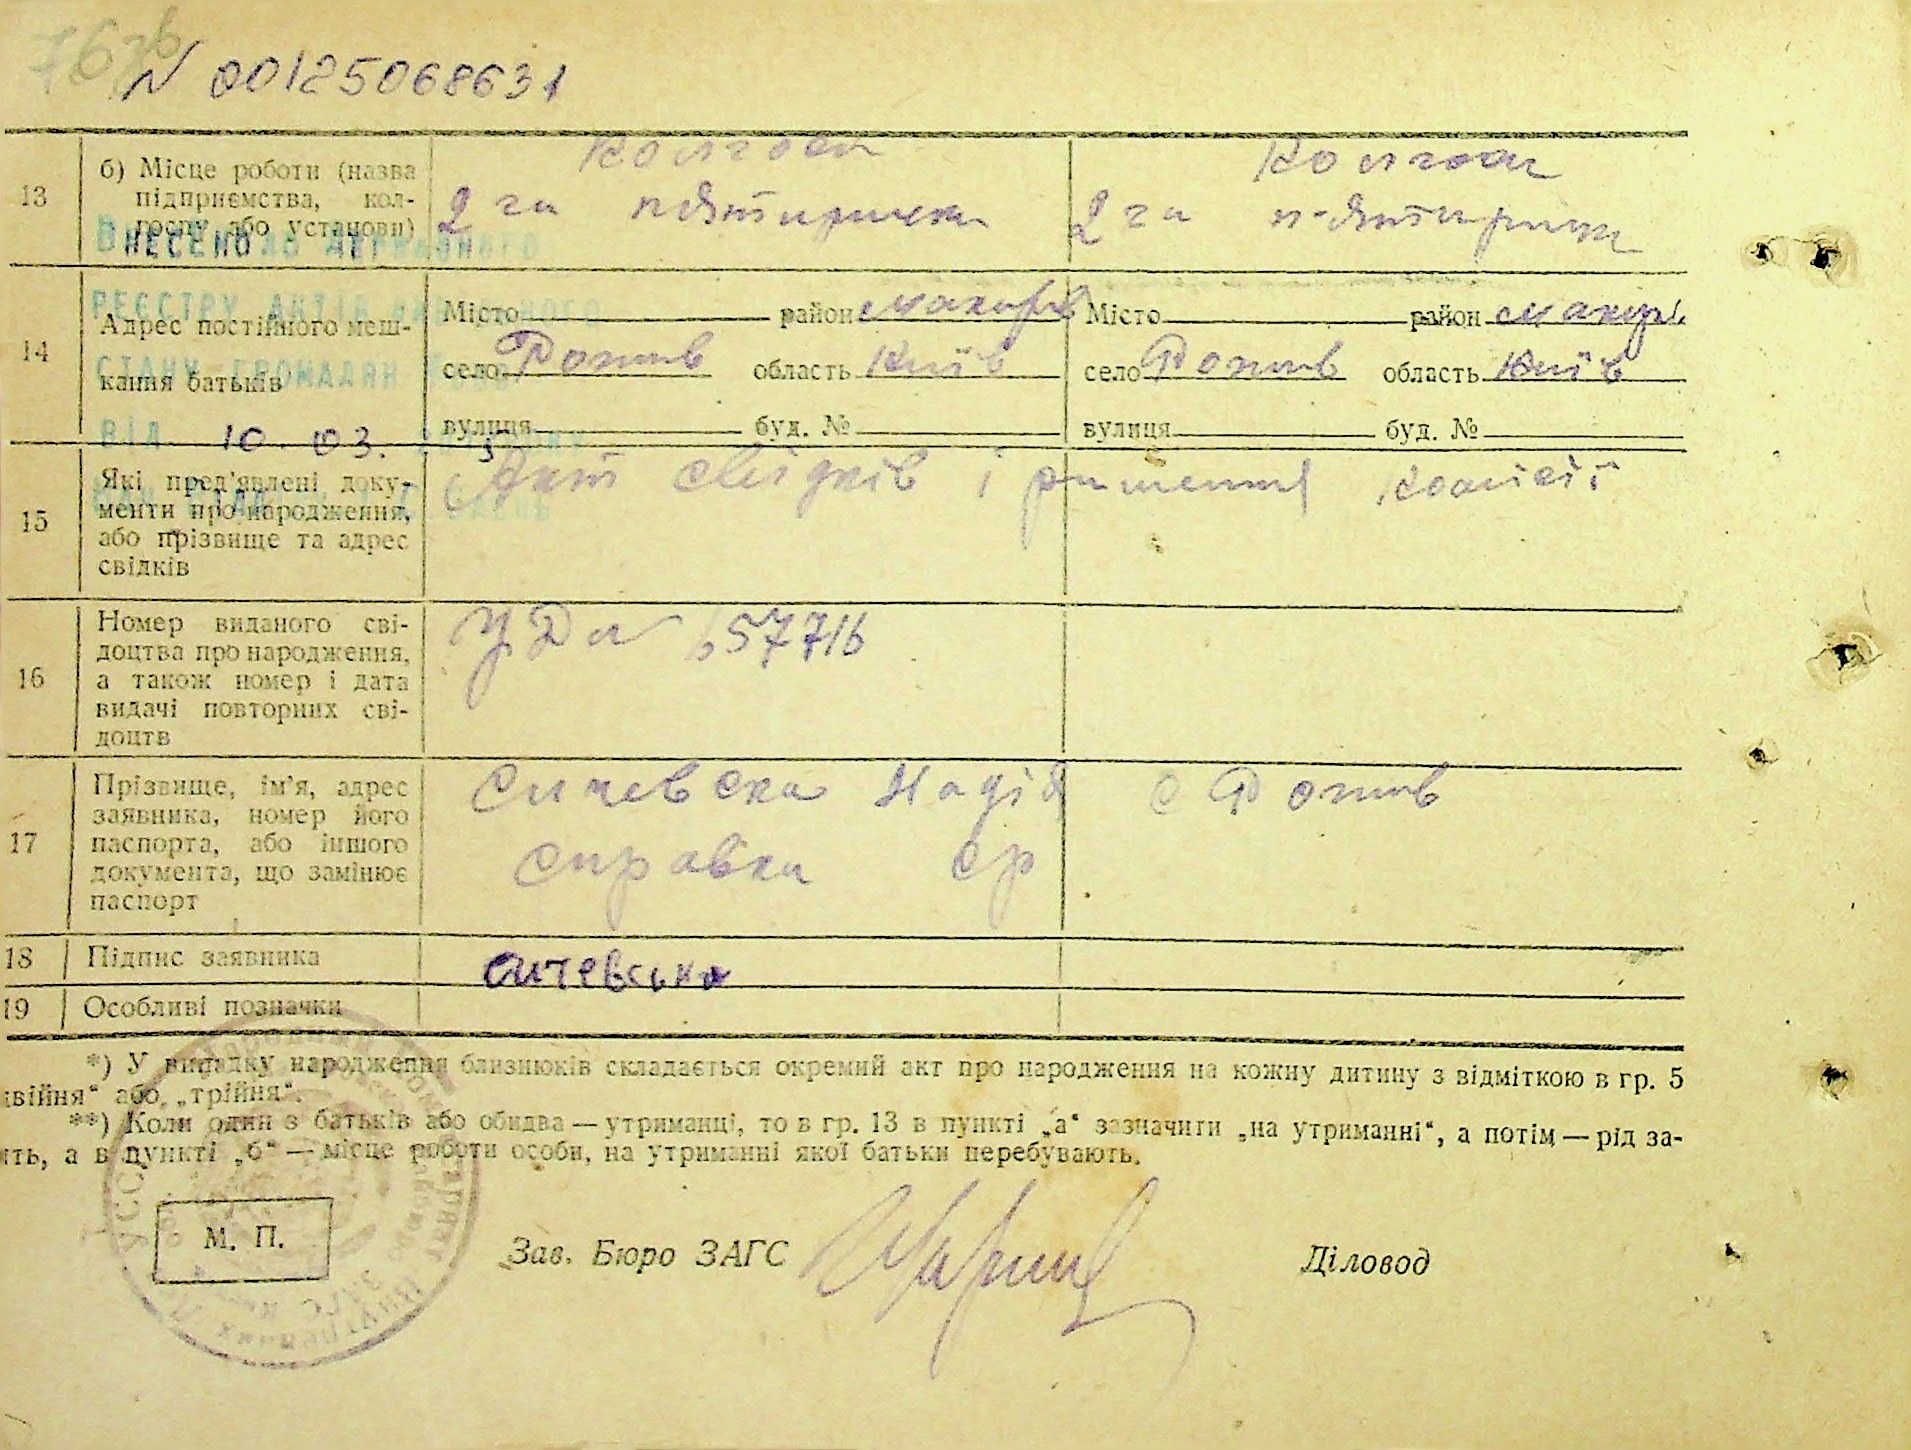 N 00125068631
13 б) Місце роботи (назва підприємства, колгоспу або установи)
Колгосп Колгосп
2 га пятирична 2 га п-ятирична
ВНЕСЕНО ДО ДЕРЖАВНОГО
РЕЄСТРУ АКТІВ ЦИВІЛЬНОГО
СТАНУ ГРОМАДЯН
ВІД 10.03.
14 Адрес постійного мешкання батьків
Місто район Макарів Місто район Макарів
село область Київ село область Київ
вулиця буд. № вулиця буд. №
15 Які пред'явлені документи про народження, або прізвище та адрес свідків
Акт свідків і рішення комісії
16 Номер виданого свідоцтва про народження, а також номер і дата видачі повторних свідоцтв
657716
17 Прізвище, ім'я, адрес заявника, номер його паспорта, або іншого документа, що замінює паспорт
Сичевска Надія с
справка ср
18 Підпис заявника Сичевська
19 Особливі позначки
*) У випадку народження близнюків складається окремий акт про народження на кожну дитину з відміткою в гр. 5
двійня“ або „трійня“.
**) Коли один з батьків або обидва — утриманці, то в гр. 13 в пункті „а“ зазначити „на утриманні“, а потім — рід за-
ять, а в пункті „б“ — місце роботи особи, на утриманні якої батьки перебувають.
М. П.
Зав. Бюро ЗАГС Діловод